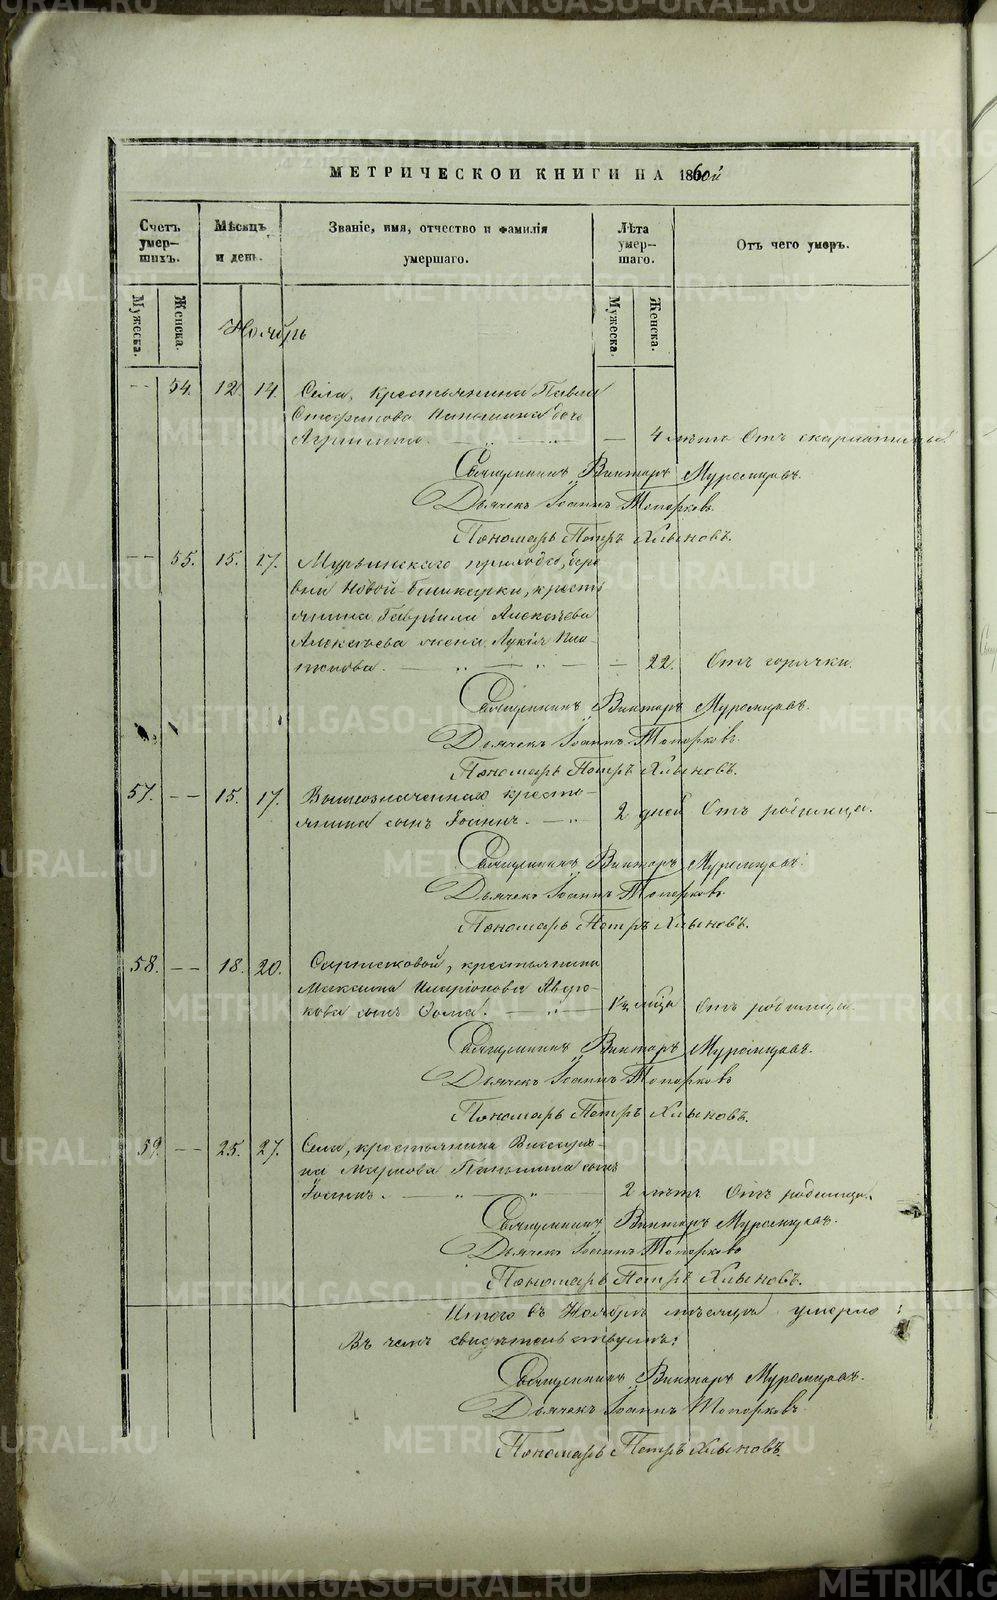 МЕТРИЧЕСКОЙ КНИГИ НА 1860й
Счетъ умер- шихъ.
Мѣсяцъ и день.
Званіе, имя, отчество и фамилія умершаго.
Лѣта умер- шаго.
Отъ чего умеръ.
Мужеска. Женска.
Мужеска. Женска.
Ноябрь
— 54. 12. 14. Села, крестьянина Павла
Стефанова дочь
— 4 лѣтъ Отъ скарлатины.
Священникъ Викторъ Муромцовъ.
Дьячекъ Іоаннъ Топорковъ.
Пономарь Петръ Хлыновъ.
— 55. 15. 17. Мурзинскаго прихода, дере-
вни Новой крестья-
янина Гавріила Алексѣева
Алексѣева жена Лукія Пла-
тонова. — 22. Отъ горячки.
Священникъ Викторъ Муромцовъ.
Дьячекъ Іоаннъ Топорковъ.
Пономарь Петръ Хлыновъ.
57. — 15. 17. Вышеозначеннаго кресть-
янина сынъ Іоаннъ. — 2 дней Отъ родимца.
Священникъ Викторъ Муромцовъ.
Дьячекъ Іоаннъ Топорковъ
Пономарь Петръ Хлыновъ.
58. — 18. 20. крестьянина
Максима Иларіонова
сынъ Ѳома. — Отъ родимца.
Священникъ Викторъ Муромцовъ.
Дьячекъ Іоаннъ Топорковъ
Пономарь Петръ Хлыновъ.
59. — 25. 27. Села, крестьянина
Маркова Паньшина сынъ
Іоаннъ. — 2 лѣтъ Отъ родимца.
Священникъ Викторъ Муромцовъ.
Дьячекъ Іоаннъ Топорковъ
Пономарь Петръ Хлыновъ.
Итого въ Ноябрѣ мѣсяцѣ умерло:
Въ чемъ свидѣтельствуемъ:
Священникъ Викторъ Муромцовъ.
Дьячекъ Іоаннъ Топорковъ.
Пономарь Петръ Хлыновъ.
METRIKI.GASO-URAL.RU